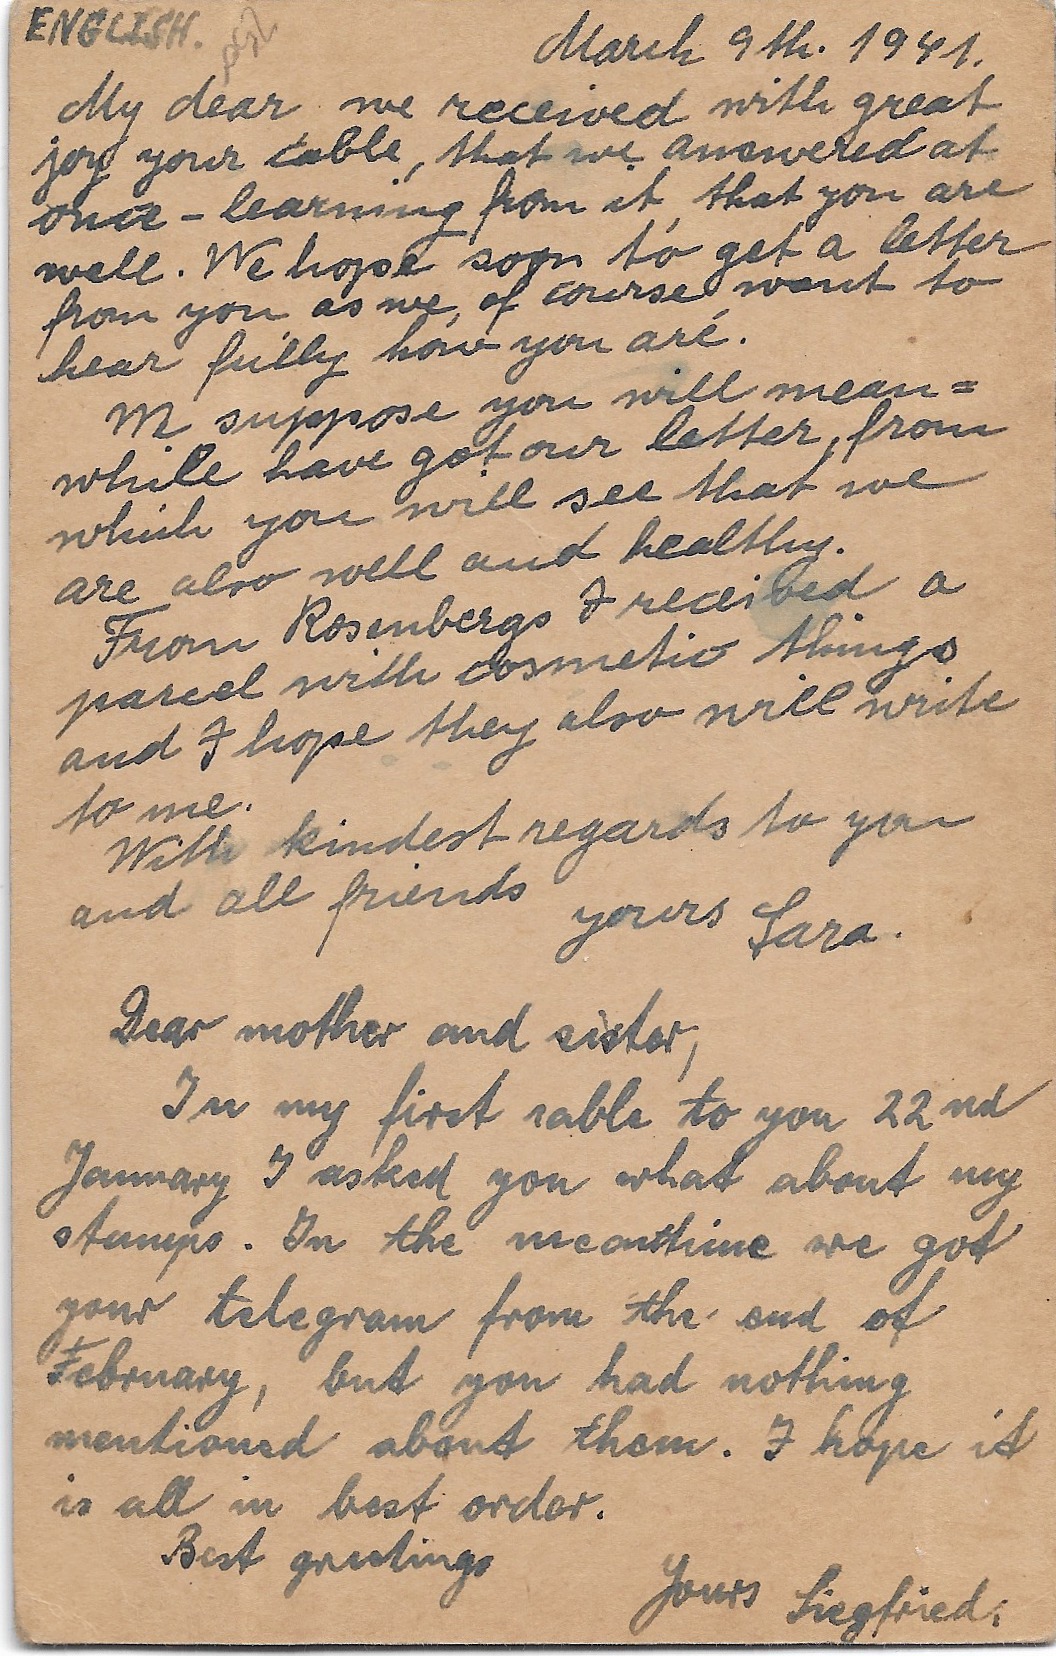 ENGLISH.
March 9th. 1941.
My dear we received with great
joy your cable, that we answered at
once - learning from it, that you are
well. We hope soon to get a letter
from you as we, of course want to
hear fully how you are.
We suppose you will mean=
while have got our letter, from
which you will see that we
are also well and healthy.
From Rosenbergs I received a
parcel with cosmetic things
and I hope they also will write
to me.
With kindest regards to you
and all friends
yours Sara.
Dear mother and sister,
In my first cable to you 22nd
January I asked you what about my
stamps. In the meantime we got
your telegram from the end of
February, but you had nothing
mentioned about them. I hope it
is all in best order.
Best greetings
Yours Siegfried.